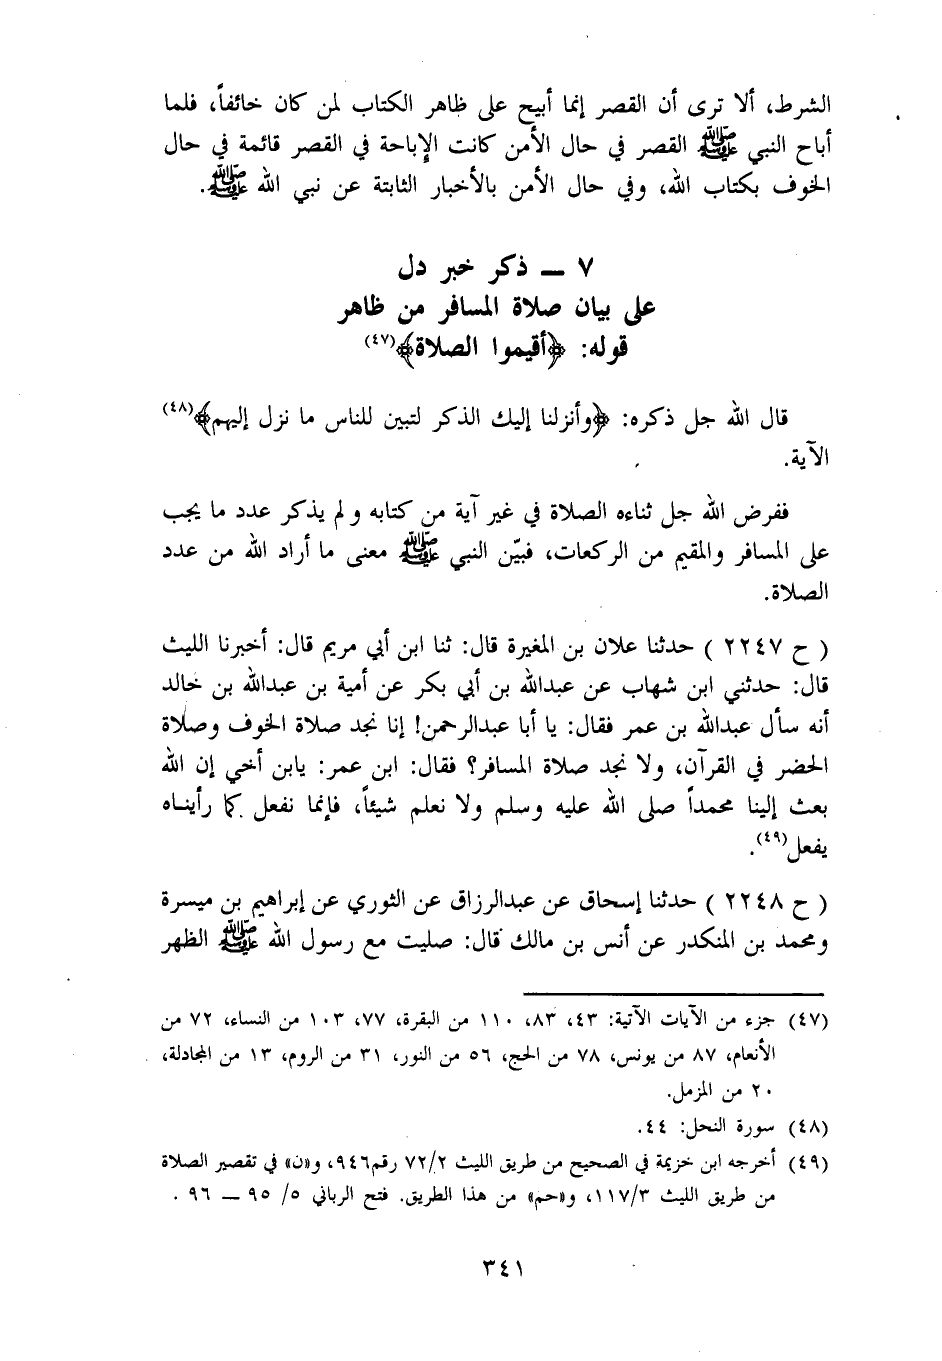 الشرط، ألا ترى أن القصر إنما أبيح على ظاهر الكتاب لمن كان خائفاً، فلما
أباح النبي ﷺ القصر في حال الأمن كانت الإباحة في القصر قائمة في حال
الخوف بكتاب الله، وفي حال الأمن بالأخبار الثابتة عن نبي الله ﷺ.
٧ ــ ذكر خبر دل
على بيان صلاة المسافر من ظاهر
قوله: ﴿أقيموا الصلاة﴾(٤٧)
قال الله جل ذكره: ﴿وأنزلنا إليك الذكر لتبين للناس ما نزل إليهم﴾(٤٨)
الآية.
ففرض الله جل ثناءه الصلاة في غير آية من كتابه ولم يذكر عدد ما يجب
على المسافر والمقيم من الركعات، فبيّن النبي ﷺ معنى ما أراد الله من عدد
الصلاة.
( ح ٢٢٤٧ ) حدثنا علان بن المغيرة قال: ثنا ابن أبي مريم قال: أخبرنا الليث
قال: حدثني ابن شهاب عن عبدالله بن أبي بكر عن أمية بن عبدالله بن خالد
أنه سأل عبدالله بن عمر فقال: يا أبا عبدالرحمن! إنا نجد صلاة الخوف وصلاة
الحضر في القرآن، ولا نجد صلاة المسافر؟ فقال: ابن عمر: يابن أخي إن الله
بعث إلينا محمداً صلى الله عليه وسلم ولا نعلم شيئاً، فإنما نفعل كما رأيناه
يفعل(٤٩).
( ح ٢٢٤٨ ) حدثنا إسحاق عن عبدالرزاق عن الثوري عن إبراهيم بن ميسرة
ومحمد بن المنكدر عن أنس بن مالك قال: صليت مع رسول الله ﷺ الظهر
(٤٧) جزء من الآيات الآتية: ٤٣، ٨٣، ١١٠ من البقرة، ٧٧، ١٠٣ من النساء، ٧٢ من
الأنعام، ٨٧ من يونس، ٧٨ من الحج، ٥٦ من النور، ٣١ من الروم، ١٣ من المجادلة،
٢٠ من المزمل.
(٤٨) سورة النحل: ٤٤.
(٤٩) أخرجه ابن خزيمة في الصحيح من طريق الليث ٧٢/٢ رقم ٩٤٦، و«ن» في تقصير الصلاة
من طريق الليث ١١٧/٣، و«حم» من هذا الطريق. فتح الرباني ٥/ ٩٥ ــ ٩٦ .
٣٤١